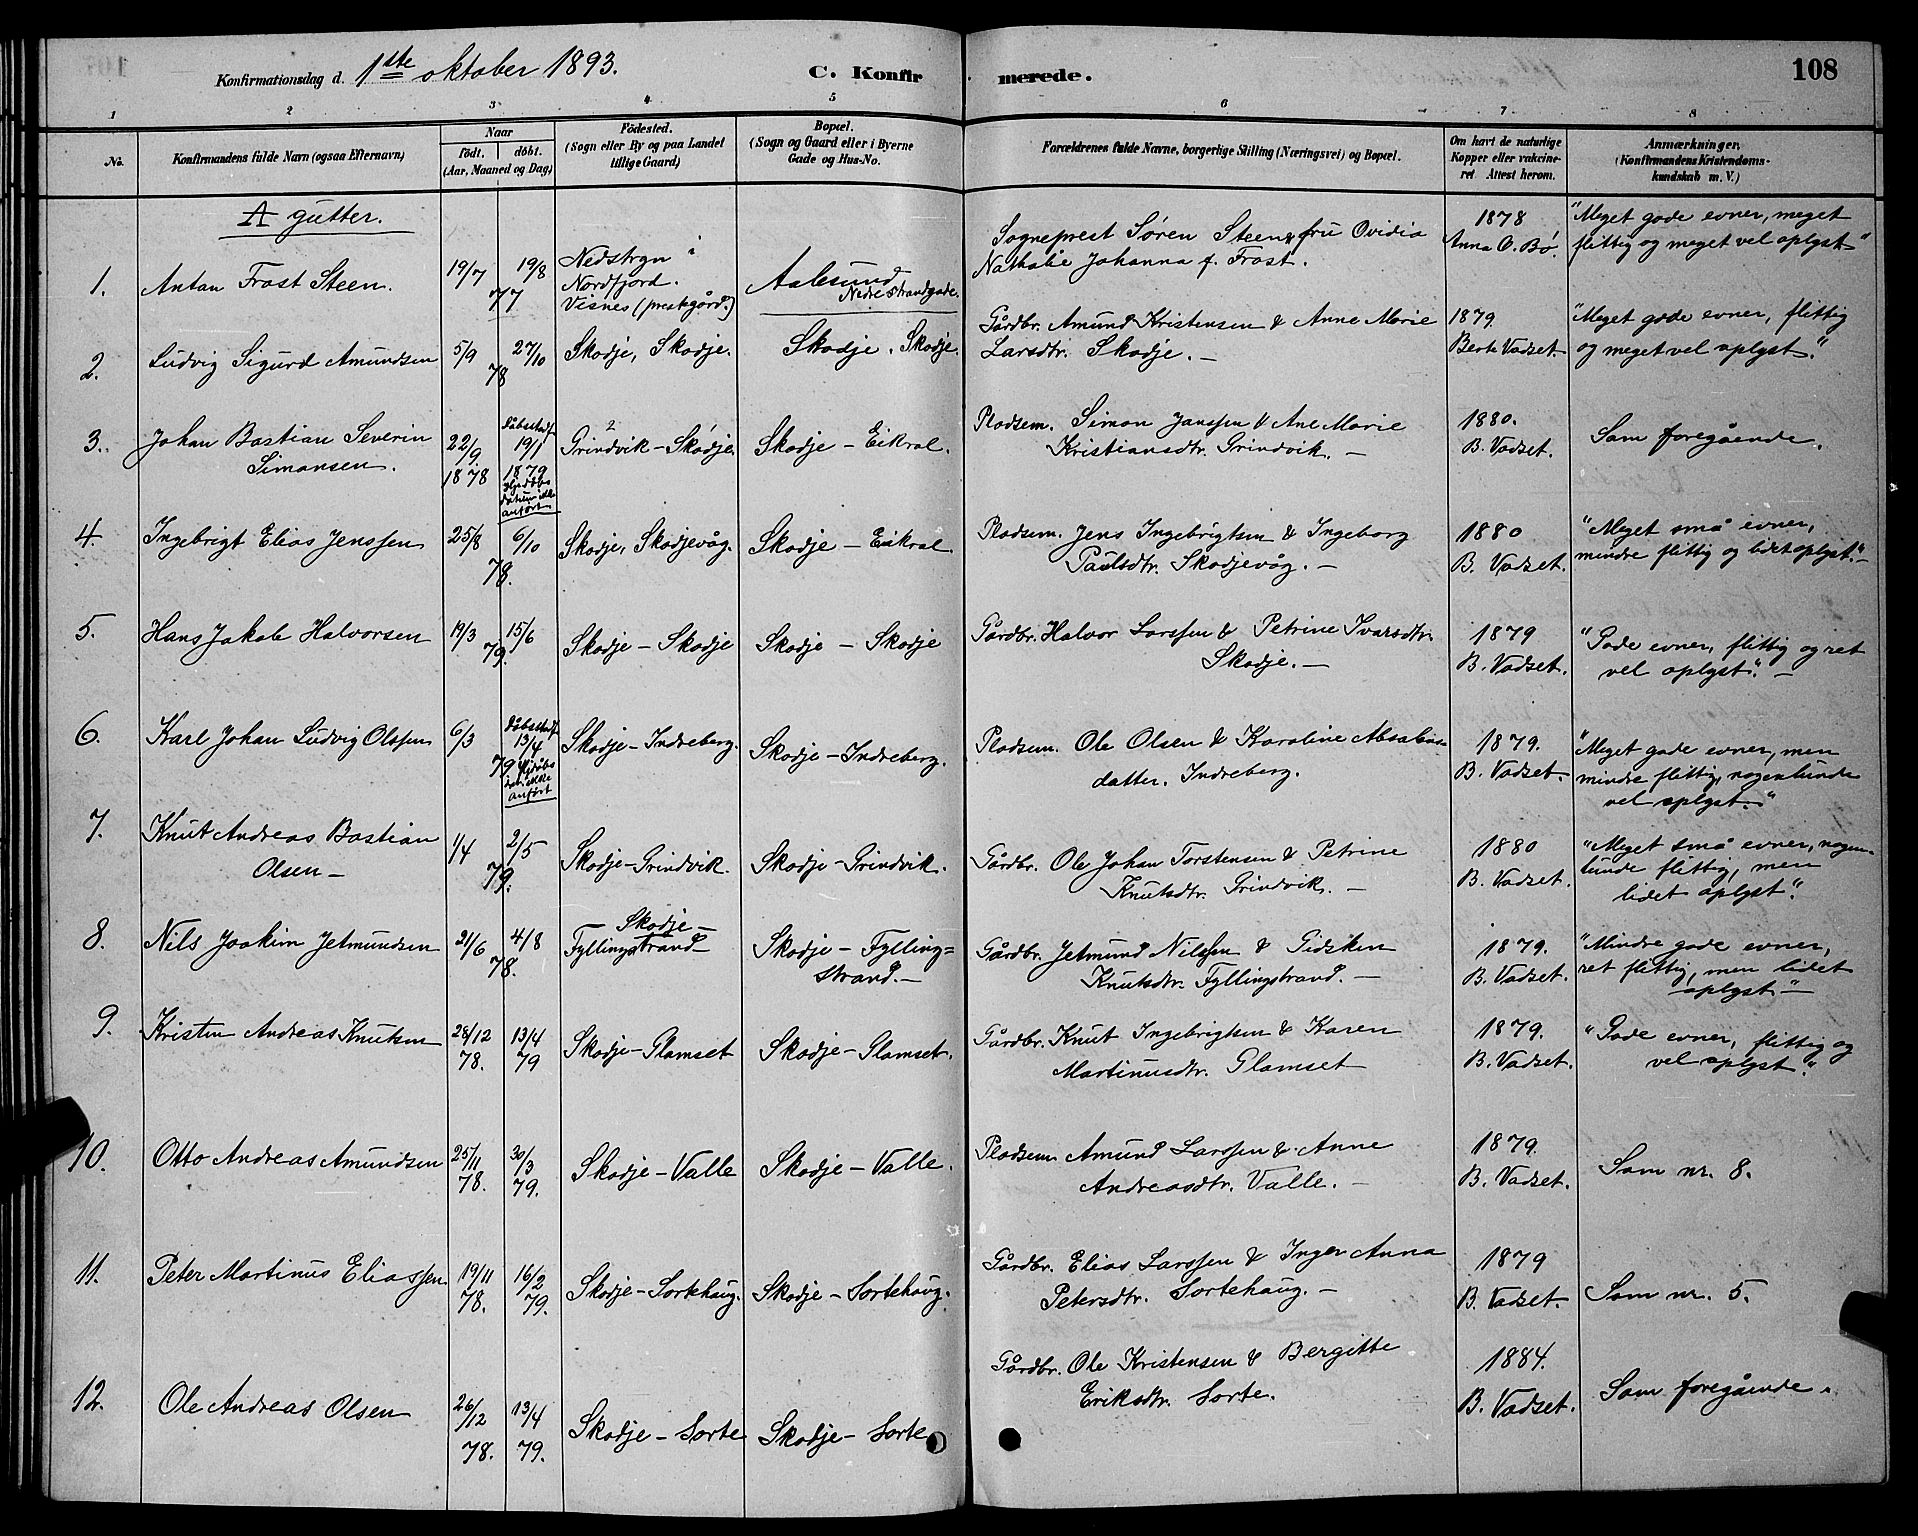 Konfirmationsdag d. 1ste oktober 1893.
C. Konfirmerede.
108
1 2 3 4 5 6 7 8
No.
Konfirmandens fulde Navn (ogsaa Efternavn)
Naar
födt. döbt.
(Aar, Maaned og Dag)
Födested.
(Sogn eller By og paa Landet
tillige Gaard)
Bopæl.
(Sogn og Gaard eller i Byerne
Gade og Hus-No.
Forældrenes fulde Navne, borgerlige Stilling (Næringsvei) og Bopæl.
Om havt de naturlige
Kopper eller vakcine-
ret Attest herom.
Anmærkninger.
(Konfirmandens Kristendoms-
kundskab m. V.)
A gutter.
1. Anton Frost Steen.
19/7 19/8
77
Nedstryn i
Nordfjord.
Visnes (prestgård.)
Aalesund
Nedrestrandgade.
Sogneprest Søren Steen & fru Ovidia
Nathalie Johanna f. Frost.
1878
Anna O. Bø.
"Meget gode evner, meget
flittig og meget vel oplyst"
2. Ludvig Sigurd Amundsen
5/9 27/10
78
Skodje, Skodje.
Skodje, Skodje.
Gårdbr. Amund Kristensen & Anne Marie
Larsdtr. Skodje. —
1879.
Berte Vadset.
"Meget gode evner, flittig
og meget vel oplyst."
3. Johan Bastian Severin
Simonsen.
22/9
1878
dåbstadf.
19/1
1879
hjdåbs
datum ikke
anført
Grindvik - Skodje.
Skodje - Eikral.
Pladsem. Simon Janssen & Ane Marie
Kristiansdtr. Grindvik. —
1880.
B. Vadset.
Som foregående.
4. Ingebrigt Elias Jenssen
25/8 6/10
78.
Skodje, Skodjevåg.
Skodje - Eikral.
Pladsem. Jens Ingebrigtsen & Ingeborg
Paulsdtr. Skodjevåg. —
1880
B. Vadset.
"Meget små evner,
mindre flittig og lidet oplyst." —
5. Hans Jakob Halvorsen
19/3 15/6
79.
Skodje - Skodje
Skodje - Skodje
Gårdbr. Halvor Larssen & Petrine Ivarsdtr.
Skodje. —
1879
B. Vadset.
"Gode evner, flittig og ret
vel oplyst." —
6. Karl Johan Ludvig Olssen
6/3
dåbstadf.
13/4
79 hjdåbs
dat. ikke
anført
Skodje - Indreberg.
Skodje - Indreberg.
Pladsem. Ole Olsen & Karoline Absalons-
datter. Indreberg.
1879.
B. Vadset
"Meget gode evner, men
mindre flittig, nogenlunde
vel oplyst."
7. Knut Andreas Bastian
Olsen —
1/4 2/5
79.
Skodje - Grindvik.
Skodje - Grindvik.
Gårdbr. Ole Johan Torstensen & Petrine
Knutsdtr. Grindvik. —
1880
B. Vadset.
"Meget små evner, nogen-
lunde flittig, men
lidet oplyst."
8. Nils Joakim Jetmundsen
21/6 4/8
78.
Skodje —
Fyllingstrand
Skodje - Fylling=
strand. —
Gårdbr. Jetmund Nilssen & Gidsken
Knutsdtr. Fyllingstrand. —
1879.
B. Vadset.
"Mindre gode evner,
ret flittig, men lidet
oplyst" —
9. Kristen Andreas Knutsen
28/12 13/4
78. 79
Skodje - Glamset
Skodje - Glamset.
Gårdbr. Knut Ingebrigtsen & Karen
Martinusdtr. Glamset
1879.
B. Vadset.
"Gode evner, flittig og
vel oplyst."
10. Otto Andreas Amundsen
25/11 30/3
78. 79.
Skodje - Valle
Skodje - Valle.
Pladsem. Amund Larssen & Anne
Andreasdtr. Valle. —
1879.
B. Vadset.
Som nr. 8.
11. Peter Martinus Eliassen
19/11 16/2
78. 79.
Skodje - Sortehaug.
Skodje - Sortehaug.
Gårdbr. Elias Larssen & Inger Anna
Petersdtr. Sortehaug. —
1879
B. Vadset.
Som nr. 5.
12. Ole Andreas Olsen
26/12 13/4
78. 79.
Skodje - Sorte
Skodje - Sorte
Gårdbr. Ole Kristensen & Bergitte
Eriksdtr. Sorte.
1884.
B. Vadset.
Som foregående.